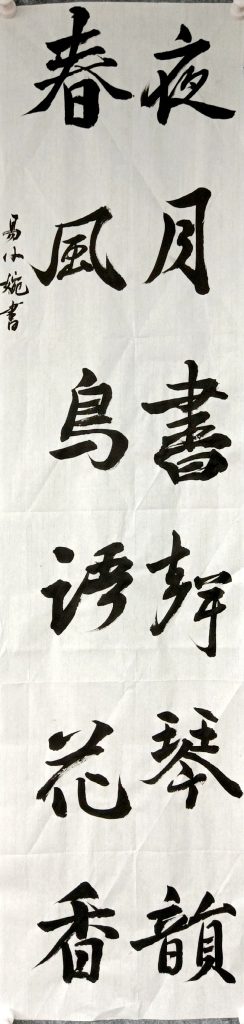 夜月書聲琴韻
春風鳥語花香
易小婉書